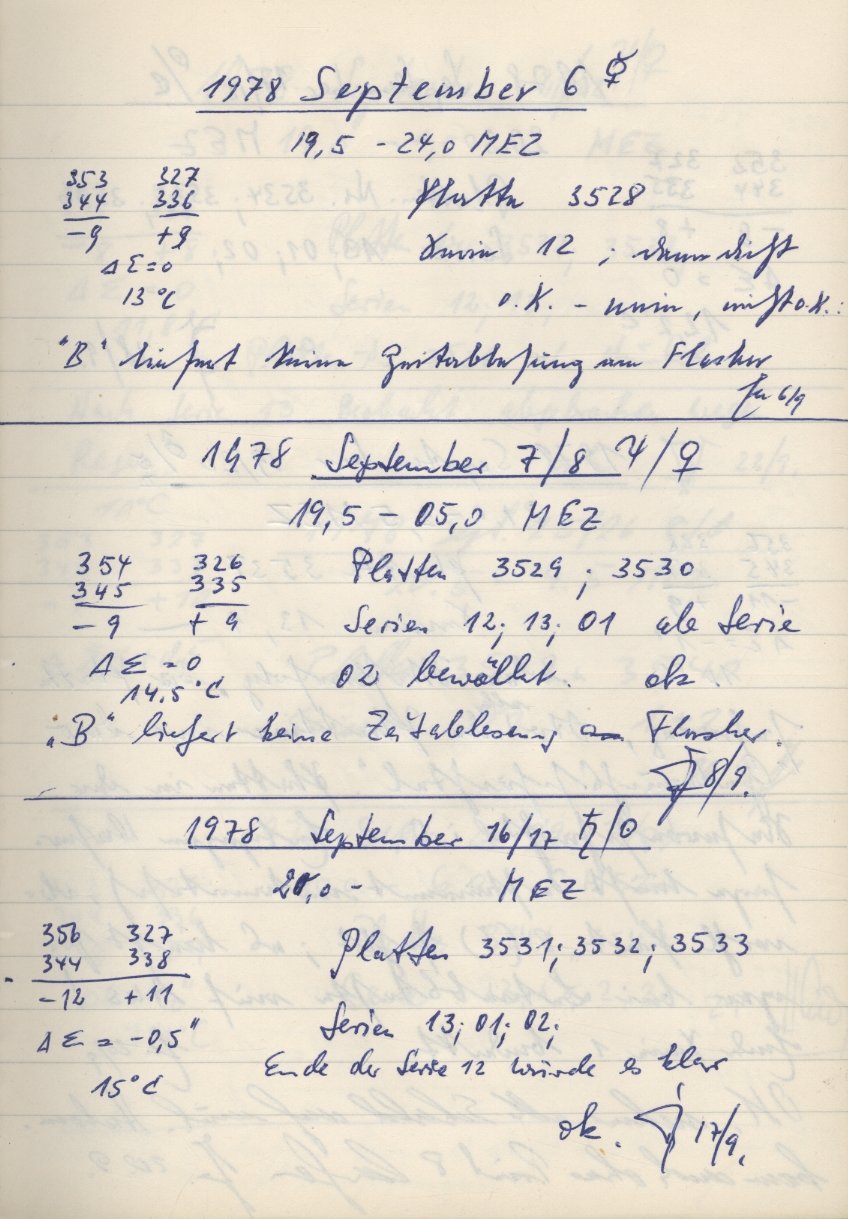 1978 September 6 ☿
19,5 - 24,0 MEZ
353 327
344 336
-9 +9
Platte 3528
Serie 12 ; dann dicht
ΔΣ=0
13°C
o.K. - nein, nicht o.K.:
"B" liefert keine Zeitablesung am Flasher
6/9
1978 September 7/8 ♃/♀
19,5 - 05,0 MEZ
354 326
345 335
-9 +9
Platten 3529 ; 3530
Serien 12; 13; 01 ab Serie
ΔΣ=0
14,5°C
02 bewölkt. ok.
„B" liefert keine Zeitablesung am Flasher.
8/9.
1978 September 16/17 ♄/⊙
20,0 - MEZ
356 327
344 338
-12 +11
Platten 3531; 3532; 3533
Serien 13; 01; 02;
ΔΣ = -0,5"
15°C
Ende der Serie 12 wurde es klar
ok. 17/9.